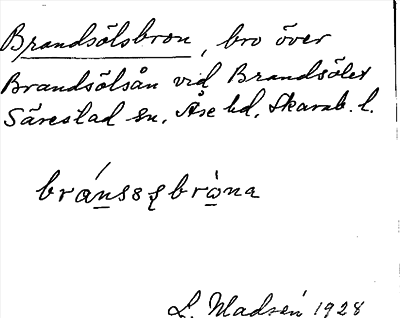 Brandsölsbron, bro över
Brandsölsån vid Brandsölet
Särestad sn, Åse hd, Skarab. l.
bránssʂbrὼna
L. Madsén 1928